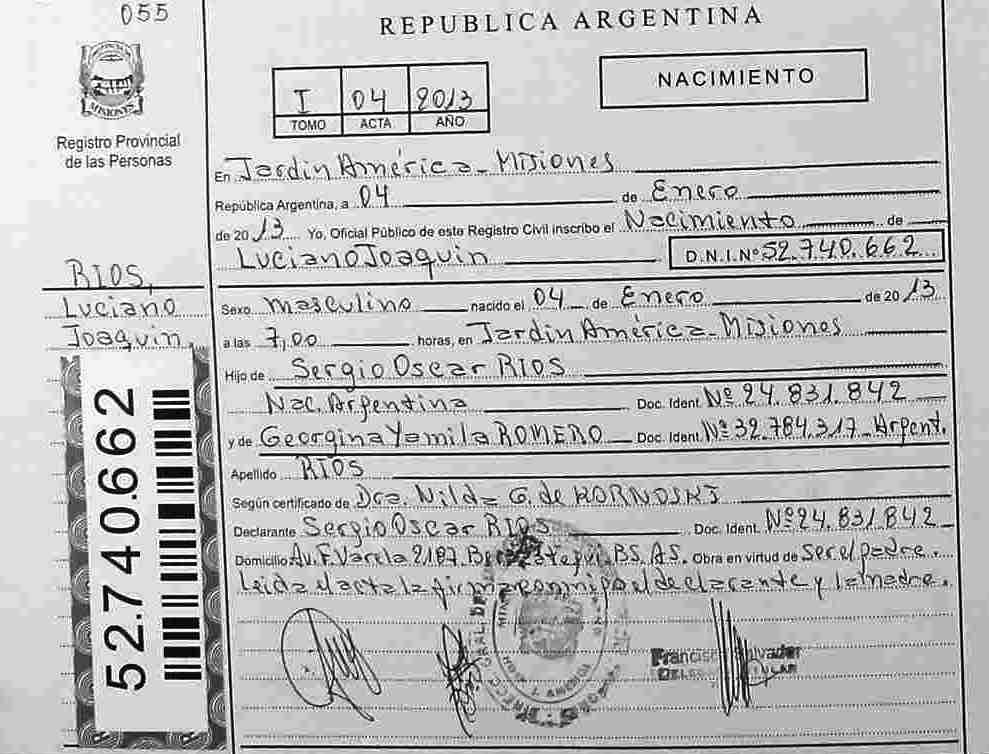 055
REPUBLICA ARGENTINA
NACIMIENTO
I 04 2013
TOMO ACTA AÑO
MISIONES
Registro Provincial
de las Personas
En Jardin América - Misiones
República Argentina, a 04 de Enero
de 2013 Yo, Oficial Público de este Registro Civil inscribo el Nacimiento de
Luciano Joaquin D.N.I.Nº 52.740.662
RIOS,
Luciano
Joaquin,
52.740.662
Sexo masculino nacido el 04 de Enero de 2013
a las 7,00 horas, en Jardin América - Misiones
Hijo de Sergio Oscar RIOS
Nac. Argentina Doc. Ident. Nº 24.831.842
y de Georgina Yamila ROMERO Doc. Ident. Nº 32.784.317 - Argent.
Apellido RIOS
Según certificado de Dra. Nilda G. de KORNOSKI
Declarante Sergio Oscar RIOS Doc. Ident. Nº 24.831.842
Domicilio Av. F. Varela 2187 Berazategui. BS. AS. Obra en virtud de Ser el padre.
Leida el acta la firma conmigo el declarante y la madre.